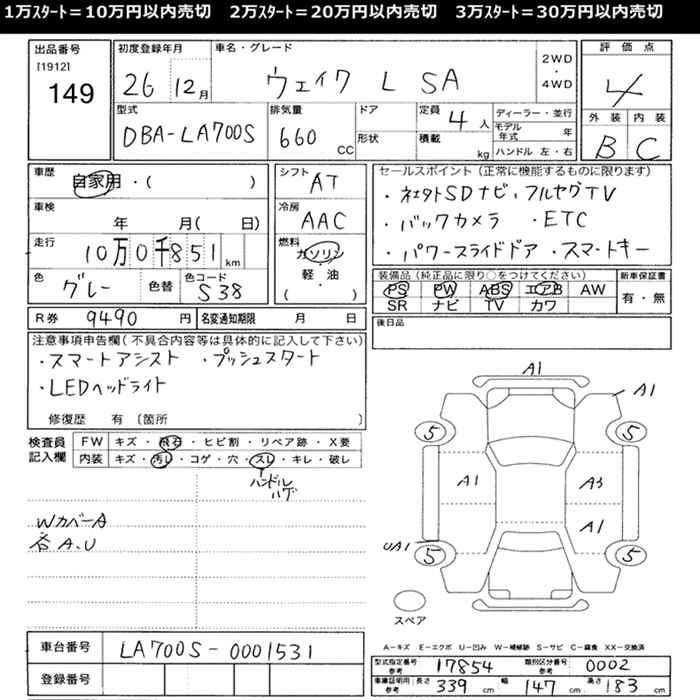 1万ｽﾀｰﾄ＝10万円以内売切　2万ｽﾀｰﾄ＝20万円以内売切　3万ｽﾀｰﾄ＝30万円以内売切
出品番号 初度登録年月 車名・グレード 評価点
[1912] 149 26 12月 ウェイク L SA 2WD・4WD 4
型式 排気量 ドア 定員 4人 ディーラー・並行 外装 内装
DBA-LA700S 660 CC 形状 積載 kg モデル年式 年 ハンドル 左・右 B C
車歴 自家用・( ) シフト AT セールスポイント（正常に機能するものに限ります）
車検 年 月( 日) 冷房 AAC ・社外SDナビ，フルセグTV
・バックカメラ ・ETC
走行 10万0千851km 燃料 ガソリン・軽・油 ( ) ・パワースライドドア ・スマートキー
色 グレー 色替 色コード S38 装備品（純正品に限り○をつけてください） 新車保証書
PS PW ABS エアB AW 有・無
SR ナビ TV カワ
R券 9490円 名変通知期限 月 日 後日品
注意事項申告欄（不具合内容等は具体的に記入して下さい）
・スマートアシスト ・プッシュスタート
・LEDヘッドライト
修復歴 有 〔箇所 〕
検査員記入欄 FW キズ・飛石・ヒビ割・リペア跡・X要
内装 キズ・汚レ・コゲ・穴・スレ・キレ・破レ
ハンドル
ハゲ
Wカバー A
各 A.U
A1
A1
5 5
A1 A3
A1
UA1 5 5
スペア
車台番号 LA700S-0001531
登録番号
A−キズ E−エクボ U−凹ミ W−補修跡 S−サビ C−腐食 XX−交換済
型式指定番号 参考 17854 類別区分番号 参考 0002
車庫証明用 参考 長さ 339 cm 幅 147 cm 高さ 183 cm